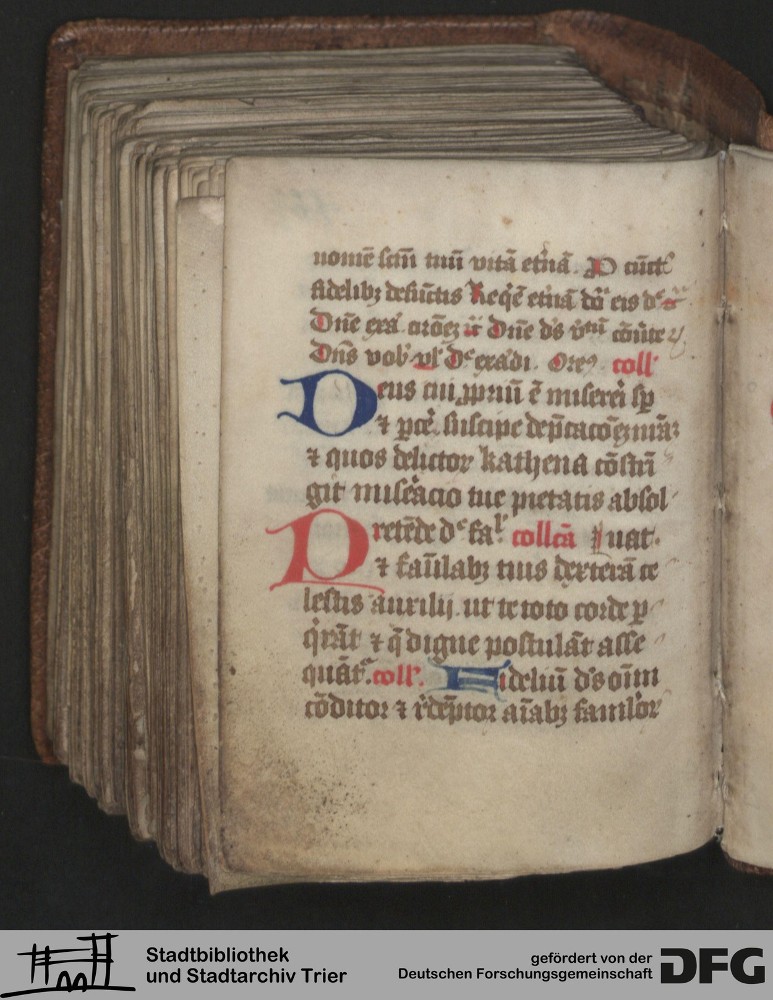 nomē sctm̄ tuū vitā etnā. Pro cūct
fidelibꝫ defūctis Reqē etnā dā eis dᵉ
Dn̄e exa. orōeꝫ Dn̄e ds v̄tu cōūte
Dn̄s vob vl Dᵉ exādi. Ore coll
Deus cui ꝓpriū ē misereri sp
⁊ pcē. suscipe dep̄cacōeꝫ nr̄ā:
⁊ quos delictor kathena cōstrī
git miseracio tue pietatis absol
Pretēde dᵉ fal collcā uat.
⁊ famlabꝫ tuis dexterā ce
lestis auxilij. ut te toto corde p
qrāt ⁊ q̄ digne postulāt asse
quāt. coll. Fideliū ds oīm
cōditor ⁊ rdēptor aīabꝫ famlor
Stadtbibliothek
und Stadtarchiv Trier
gefördert von der
Deutschen Forschungsgemeinschaft
DFG